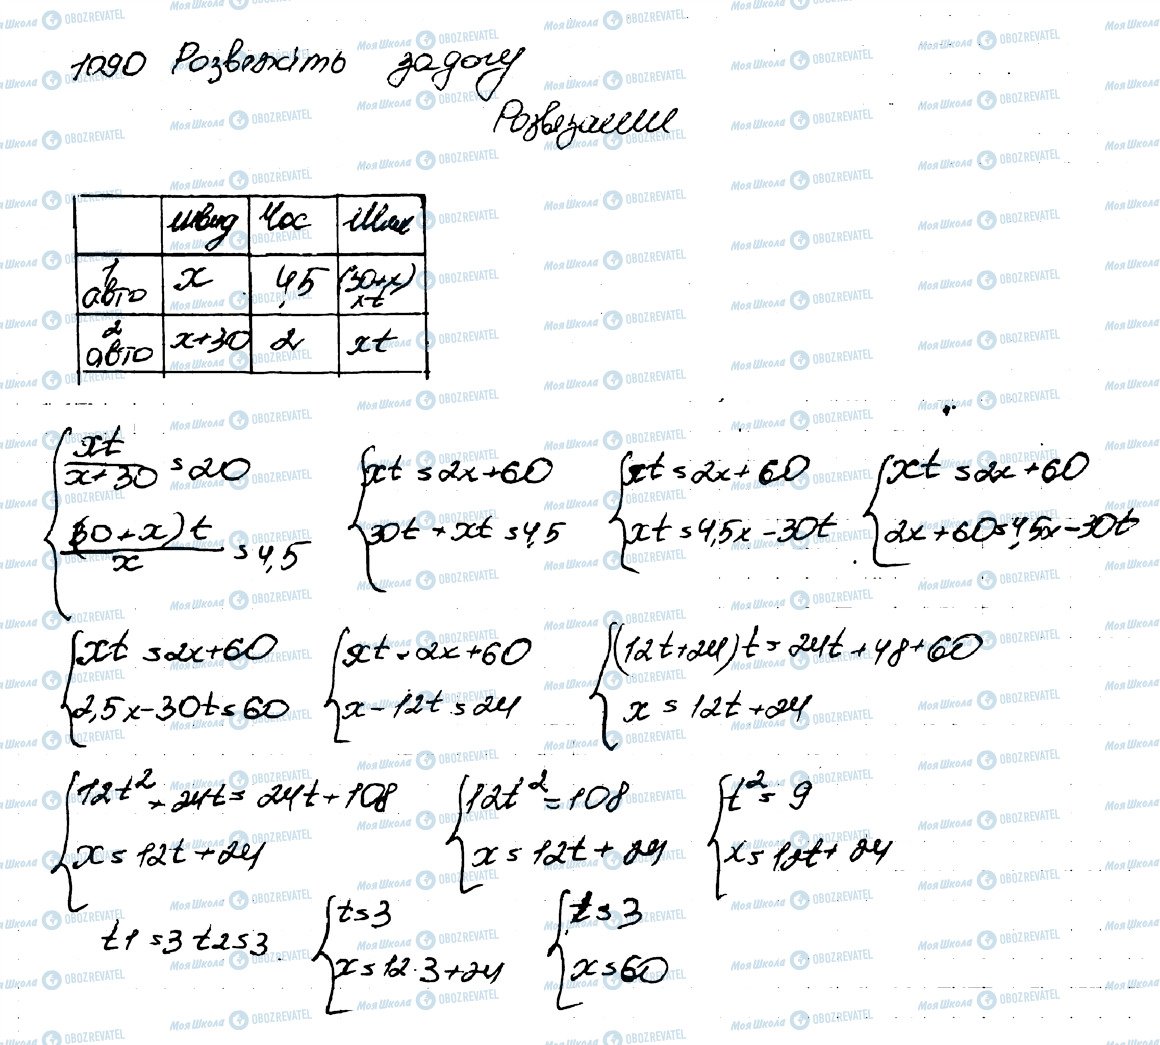 1090 Розвежіть задачу
Розвязання
швид Час Шлях
1 авто x 4,5 (30+x) xt
2 авто x+30 2 xt
{ xt/(x+30) = 20
(30+x)t/x = 4,5
{ xt = 2x+60
30t + xt = 4,5
{ xt = 2x+60
xt = 4,5x-30t
{ xt = 2x+60
2x+60 = 4,5x-30t
{ xt = 2x+60
2,5x-30t = 60
{ xt = 2x+60
x-12t = 24
{ (12t+24)t = 24t+48+60
x = 12t+24
{ 12t² + 24t = 24t+108
x = 12t+24
{ 12t² = 108
x = 12t+24
{ t² = 9
x = 12t+24
t1 = 3 t2 = 3
{ t = 3
x = 12·3+24
{ t = 3
x = 60
Моя Школа OBOZREVATEL